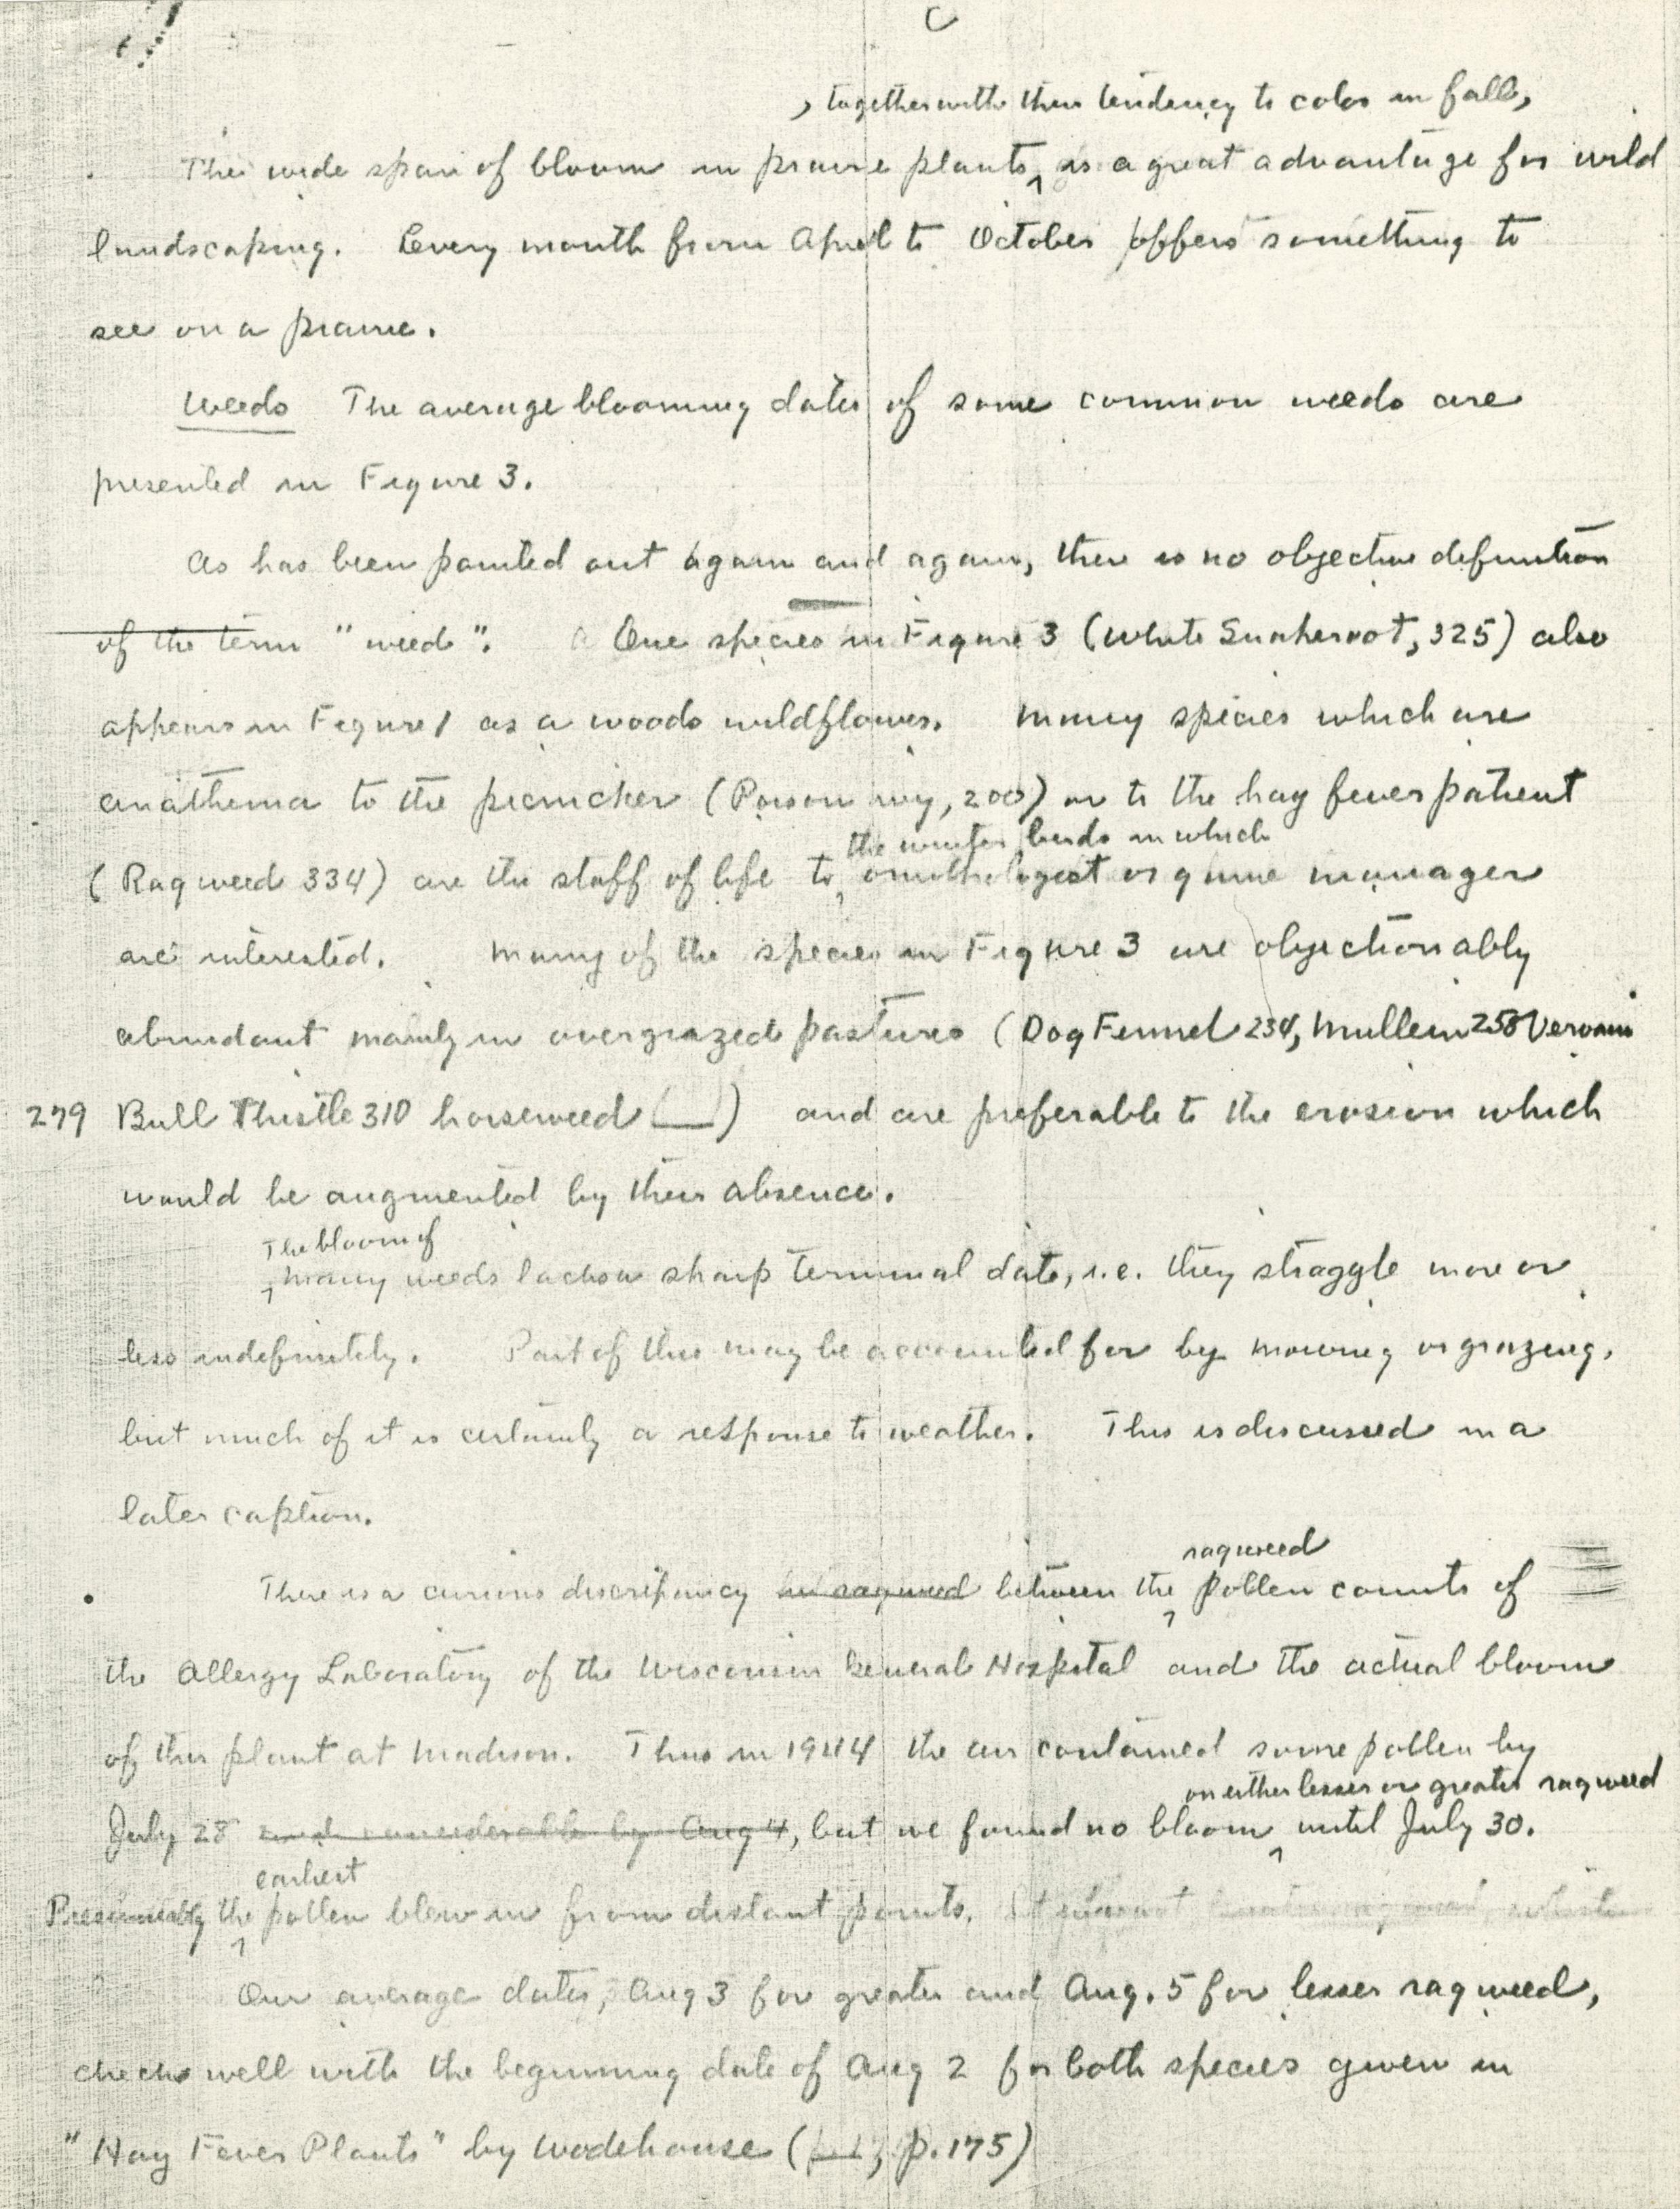 C
, together with their tendency to color in fall,
The wide span of bloom in prairie plants is a great advantage for wild
landscaping. Every month from April to October offers something to
see on a prairie.
Weeds The average blooming dates of some common weeds are
presented in Figure 3.
As has been pointed out again and again, there is no objective definition
of the term "weed". One species in Figure 3 (White Snakeroot, 325) also
appears in Figure 1 as a woods wildflower. Many species which are
anathema to the picnicker (Poison ivy, 200) or to the hay fever patient
the winter birds in which
(Ragweed 334) are the staff of life to ornithologist or game manager
are interested. Many of the species in Figure 3 are objectionably
abundant mainly in overgrazed pastures (Dog Fennel 234, Mullein 258 Vervain
279 Bull Thistle 310 horseweed (__) and are preferable to the erosion which
would be augmented by their absence.
The bloom of
many weeds lacks a sharp terminal date, i.e. they straggle more or
less indefinitely. Part of this may be accounted for by mowing or grazing,
but much of it is certainly a response to weather. This is discussed in a
later caption.
ragweed
There is a curious discrepancy in ragweed between the pollen counts of
the Allergy Laboratory of the Wisconsin General Hospital and the actual bloom
of this plant at Madison. Thus in 1944 the air contained some pollen by
on either lesser or greater ragweed
July 28 and considerable by Aug 4, but we found no bloom until July 30.
earliest
Presumably the pollen blew in from distant points.
Our average dates, Aug 3 for greater and Aug. 5 for lesser ragweed,
checks well with the beginning date of Aug 2 for both species given in
"Hay Fever Plants" by Wodehouse ( , p. 175)